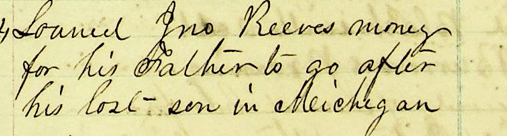 Loaned Jno Reeves money
for his Father to go after
his lost son in Meichegan